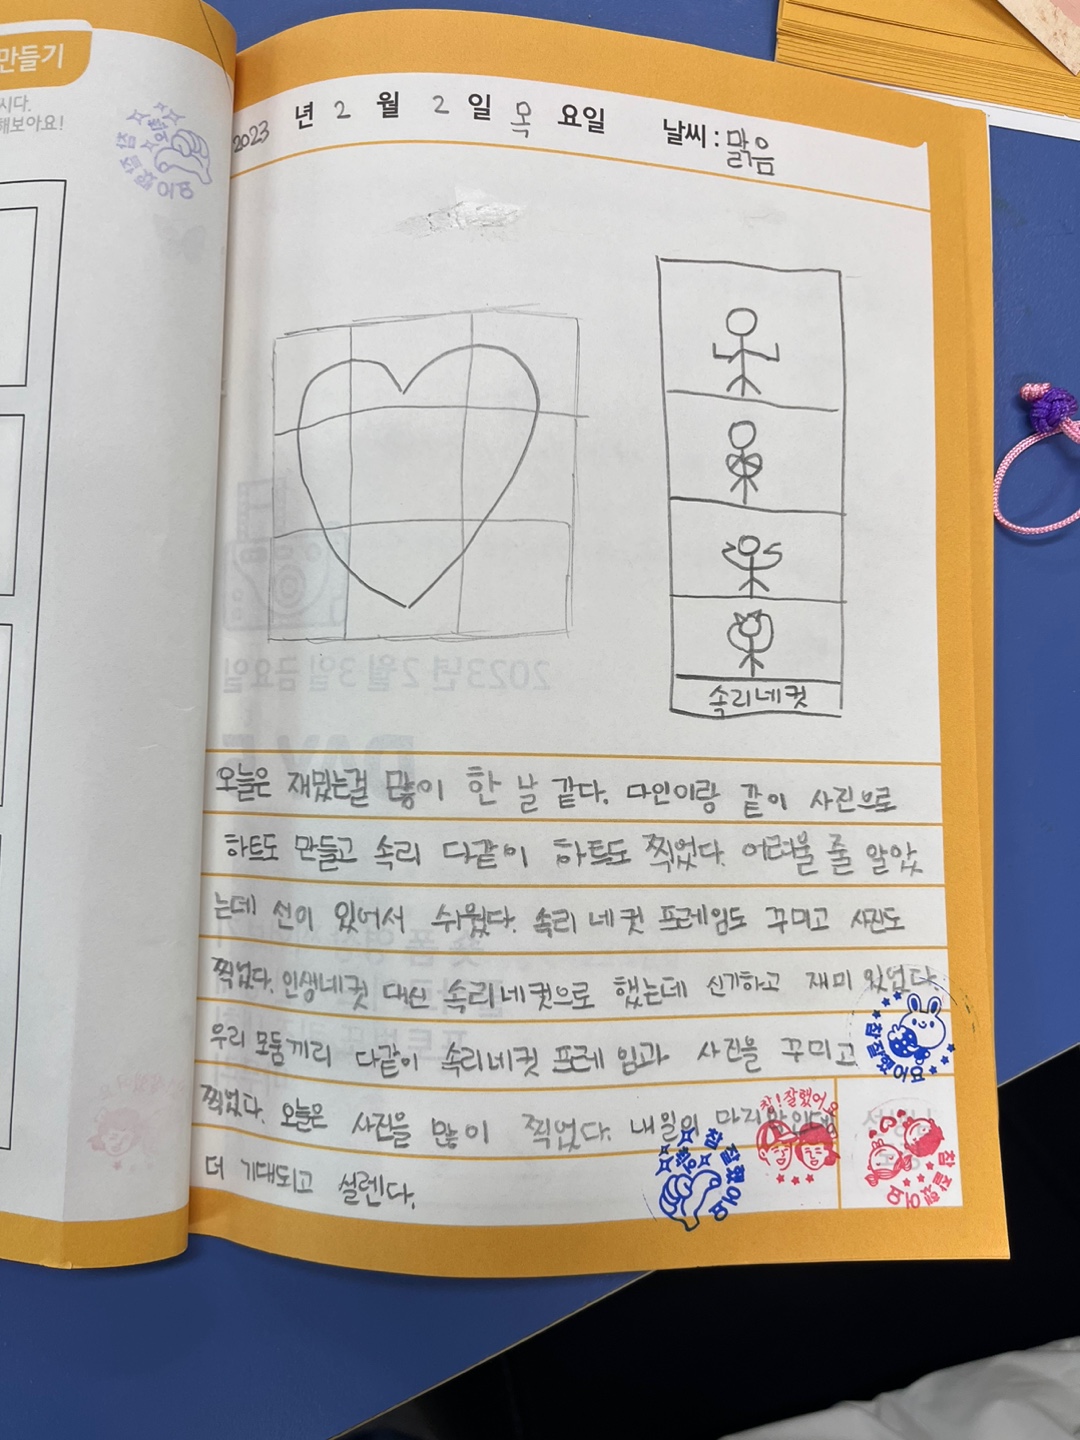 만들기
시다.
해보아요!
2023 년 2 월 2 일 목 요일 날씨 : 맑음
속리네컷
2023년 2월 3일 금요일
오늘은 재밌는걸 많이 한 날 같다. 다인이랑 같이 사진으로
하트도 만들고 속리 다같이 하트도 찍었다. 어려울 줄 알았
는데 선이 있어서 쉬웠다. 속리 네컷 프레임도 꾸미고 사진도
찍었다. 인생네컷 대신 속리네컷으로 했는데 신기하고 재미 있었다.
우리 모둠끼리 다같이 속리네컷 프레임과 사진을 꾸미고
찍었다. 오늘은 사진을 많이 찍었다. 내일이 마지막인데
더 기대되고 설렌다.
참 잘했어요
참! 잘했어요
참 잘했어요
참 잘했어요